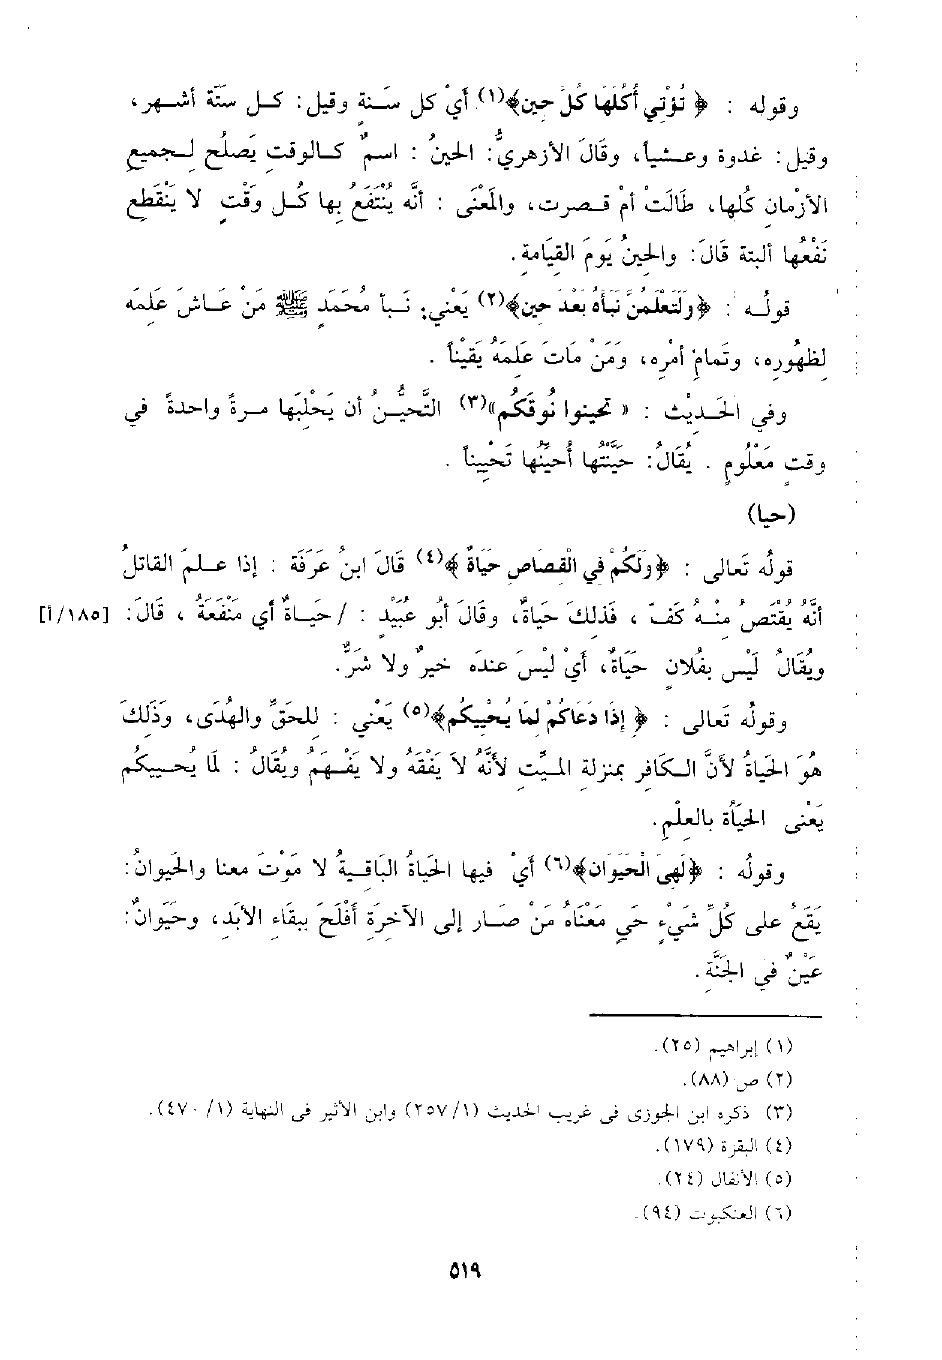 وقوله : ﴿ تُؤْتِي أُكُلَهَا كُلَّ حِينٍ﴾(١) أيْ كل سَنة وقيل: كل ستَّة أشهر،
وقيل: غدوة وعشياً، وقَالَ الأزهريُّ: الحينُ : اسمٌ كالوقتِ يَصلُح لِجميعِ
الأزْمانِ كُلها، طَالَتْ أمْ قصرت، والمْعْنَى : أنَّه يُنْتَفَعُ بِها كُل وقْتٍ لا ينْقَطع
نَفْعُها ألبتة قَالَ: والحِينُ يَومَ القيَامةِ.
قولُه : ﴿وَلَتَعْلَمُنَّ نَبَأَهُ بَعْدَ حِينٍ﴾(٢) يَعْني: نَبأ مُحَمَدٍ ﷺ مَنْ عَاشَ عَلِمَه
لِظُهورِه، وتَمامِ أمْرِه، وَمَنْ مَاتَ عَلِمَهُ يَقيْناً .
وفي الحَديْث : « تحينوا نُوقَكُم»(٣) التَّحيُّنُ أن يَحْلِبَها مرةً واحدةً في
وقت مَعْلُومٍ . يُقَالُ: حَيَّنْتُها أحيِّنُها تَحْيِيناً .
(حيا)
قولُه تَعالى : ﴿وَلَكُمْ فِي الْقِصَاصِ حَيَاةٌ ﴾(٤) قَالَ ابنُ عَرَفَة : إذا علمَ القاتلُ
أنَّه يُقْتَصُ مِنْهُ كَفّ ، فَذلِكَ حَيَاةٌ، وقَالَ أبُو عُبَيْدٍ : /حَيَاةٌ أي مَنْفَعَةُ ، قَالَ: [١٨٥/أ]
ويُقَالُ لَيْس بِفُلانٍ حَيَاةٌ، أيْ لَيْسَ عندَه خيرٌ ولا شَرٌّ.
وقولُه تَعالى : ﴿ إِذَا دَعَاكُمْ لِمَا يُحْيِيكُم﴾(٥) يَعْني : للحَقِّ والهُدَى، وَذَلكَ
هُوَ الحَياةُ لأنَّ الكافر بمنزلةِ الميِّتِ لأنَّهُ لاَ يَفْقَهُ ولا يَفْهَمُ ويُقَالُ : لمَا يُحييكُم
يَعْنى الحَيَاُة بالعِلْمِ.
وقولُه : ﴿لَهِيَ الْحَيَوَانُ﴾(٦) أيْ فيها الحَيَاةُ البَاقيةُ لا مَوْتَ معنا والحَيوانُ:
يَقَعُ على كُلِّ شَيْءٍ حَيٍ مَعْنَاهُ مَنْ صَار إلى الآخِرَةِ أفْلَحَ ببقَاء الأبَد، وحَيَوانٌ:
عَيْنٌ في الجَنَّةِ.
(١) إبراهيم (٢٥).
(٢) ص (٨٨).
(٣) ذكره ابن الجوزى فى غريب الحديث (١/ ٢٥٧) وابن الأثير فى النهاية (١/ ٤٧٠).
(٤) البقرة (١٧٩).
(٥) الأنفال (٢٤).
(٦) العنكبوت (٩٤).
٥١٩